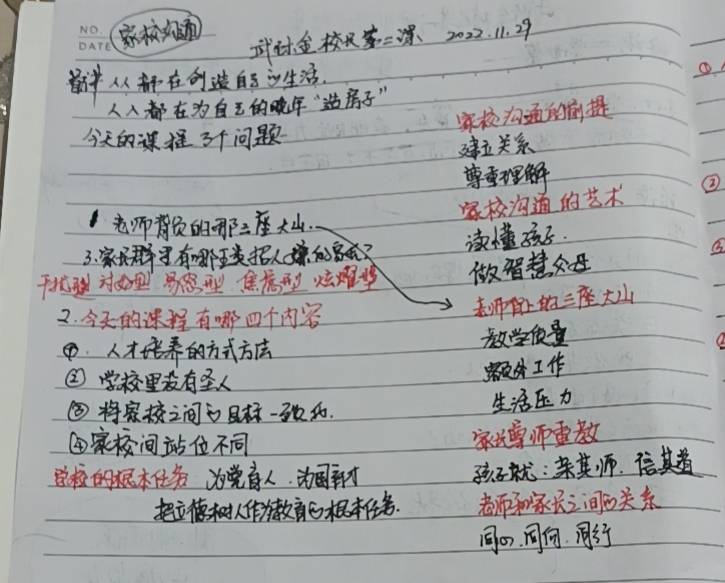 NO.
DATE
家校沟通
武校长第二课 2022.11.29
人人都在创造自己的生活.
人人都在为自己的晚年“造房子”
今天的课程 3个问题
1 老师背负的哪三座大山.
3.家长群里有哪五类招人嫌的家长?
干扰型 讨好型 易怒型 焦虑型 炫耀型
2.今天的课程有哪四个内容
①. 人才培养的方式方法
② 学校里没有圣人
③ 将家校之间的目标一致化.
④家校间站位不同
学校的根本任务 为党育人.为国育才
把立德树人作为教育的根本任务.
家校沟通的前提
建立关系
尊重理解
家校沟通的艺术
读懂孩子.
做智慧父母
老师背上的三座大山
教学质量
额外工作
生活压力
家长尊师重教
孩子就:亲其师.信其道
老师和家长之间的关系
同心.同向.同行
①
②